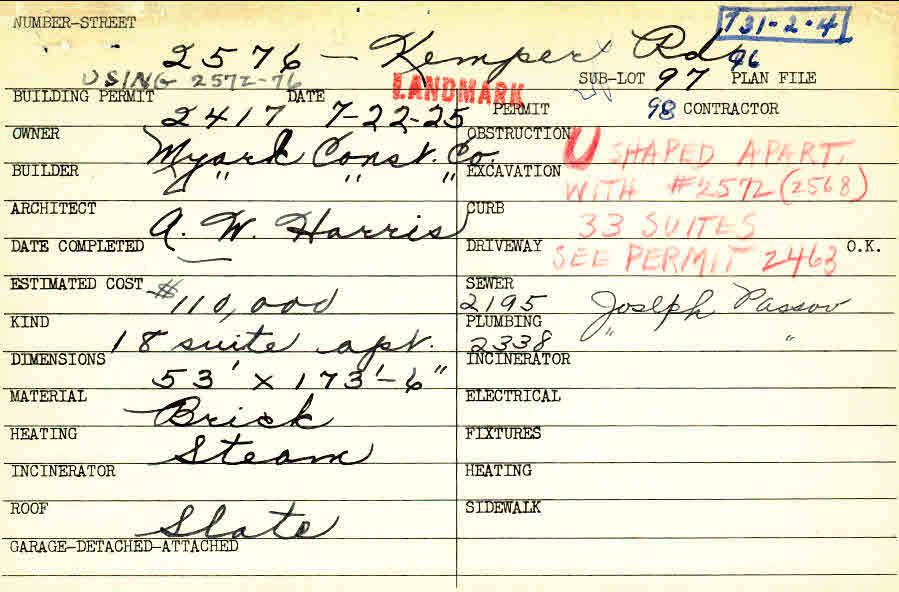 NUMBER-STREET
731-2-4
2576 - Kemper Rd.
96
USING 2572-76
LANDMARK
SUB-LOT 97 PLAN FILE
BUILDING PERMIT DATE
2417 7-22-25
PERMIT 98 CONTRACTOR
OWNER Myark Const. Co.
OBSTRUCTION
U SHAPED APART.
BUILDER " " "
EXCAVATION
WITH #2572 (2568)
ARCHITECT A. W. Harris
CURB
33 SUITES
DATE COMPLETED
DRIVEWAY O.K.
SEE PERMIT 2463
ESTIMATED COST $110,000
SEWER
2195 Joseph Passov
KIND 18 suite apt.
PLUMBING
2338 " "
DIMENSIONS 53' x 173'-6"
INCINERATOR
MATERIAL Brick
ELECTRICAL
HEATING Steam
FIXTURES
INCINERATOR
HEATING
ROOF Slate
SIDEWALK
GARAGE-DETACHED-ATTACHED